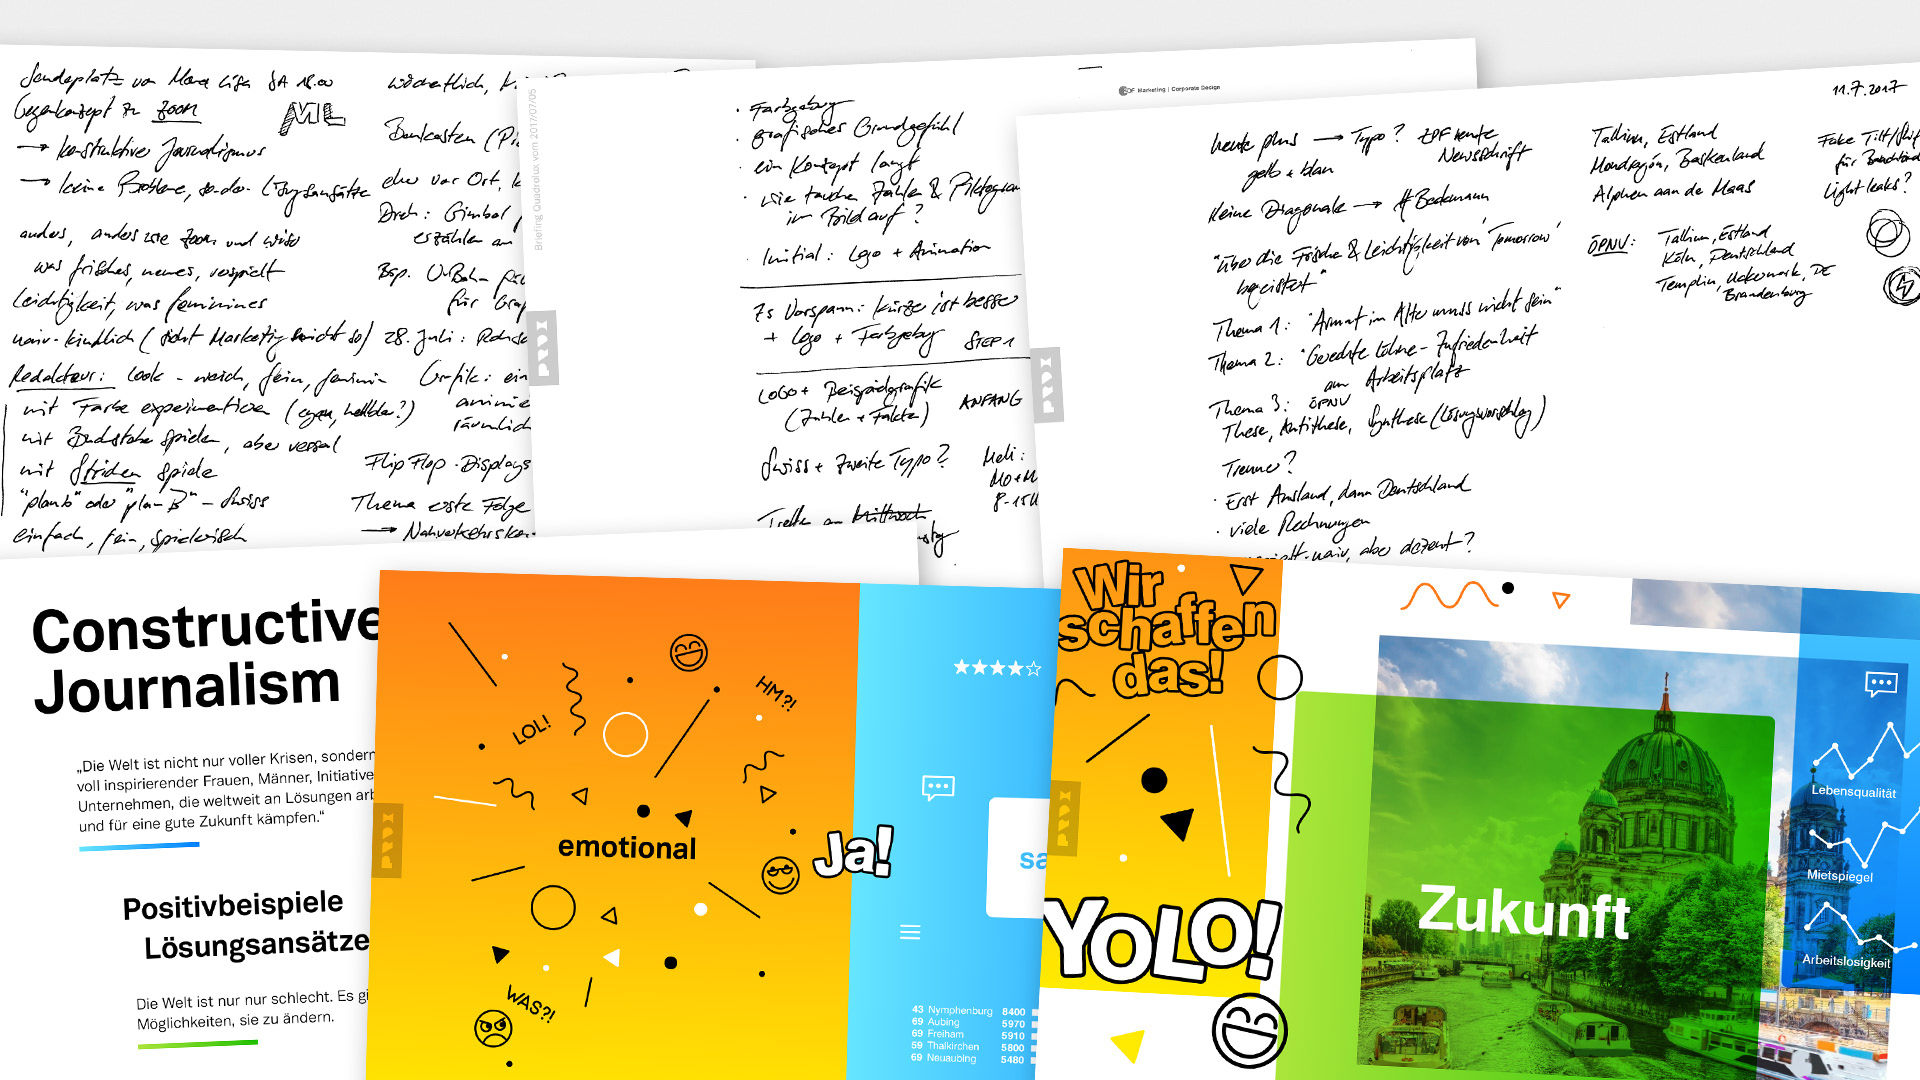 Sendeplatz von Mona Lisa SA 18.00
Gegenkonzept zu ZOOM
ML
→ konstruktiver Journalismus
→ keine Probleme, sonder Lösungsansätze
anders, anders wie Zoom und wiso
was frisches, neues, verspielt
Leichtigkeit, was feminines
naiv-kindlich (sieht Marketing nicht so)
Redakteur: Look - weich, fein, feminin
mit Farbe experimentieren
mit Buchstabe spielen, aber versal
mit Strichen spiele
"plan b" oder "plan B" - Swiss
einfach, fein, spielerisch
wöchentlich,
Baukasten
eher vor Ort,
Dreh: Gimbal
erzählen
Bsp. U-Bahn
für
28. Juli:
Grafik: ein
räumlich
Flip Flop-Displays
Thema erste Folge
→
Briefing Quadrolux vom 2017/07/05
· Farbgebung
· grafisches Grundgefühl
· ein Konzept langt
· wie tauchen Zahlen &
im Bild auf?
· Initial: Logo + Animation
7s Vorspann: kürze ist besser
+ Logo + Farbgebung STEP 1
LOGO + Beispielgrafik
(Zahlen + Fakten) ANFANG
Swiss + zweite Typo?
Treffen am Mittwoch
ZDF Marketing | Corporate Design
11.7.2017
heute plus → Typo? ZDF heute
Newsschrift
gelb + blau
Keine Diagonale → # Beckmann
"über die Frische & Leichtigkeit von 'Tomorrow'
begeistert"
Thema 1: "Armut im Alter muss nicht sein"
Thema 2: "Gerechte Löhne - Zufriedenheit
am Arbeitsplatz
Thema 3: ÖPNV
These, Antithese, Synthese (Lösungsvorschlag)
Trenner?
· Erst Ausland, dann Deutschland
· viele Rechnungen
naiv, aber dezent?
Tallinn, Estland
Mondragón, Baskenland
Alphen aan de Maas
ÖPNV: Tallinn, Estland
Köln, Deutschland
Templin, Uckermark, DE
Brandenburg
Fake Tilt/Shift
für
Light leaks?
Constructive
Journalism
„Die Welt ist nicht nur voller Krisen, sondern
voll inspirierender Frauen, Männer, Initiative
Unternehmen, die weltweit an Lösungen arb
und für eine gute Zukunft kämpfen.“
Positivbeispiele
Lösungsansätze
Die Welt ist nur nur schlecht. Es gi
Möglichkeiten, sie zu ändern.
LOL!
HM?!
emotional
WAS?!
Ja!
sa
43 Nymphenburg 8400
69 Aubing 5970
69 Freiham 5910
59 Thalkirchen 5800
69 Neuaubing 5480
Wir
schaffen
das!
YOLO!
Zukunft
Lebensqualität
Mietspiegel
Arbeitslosigkeit